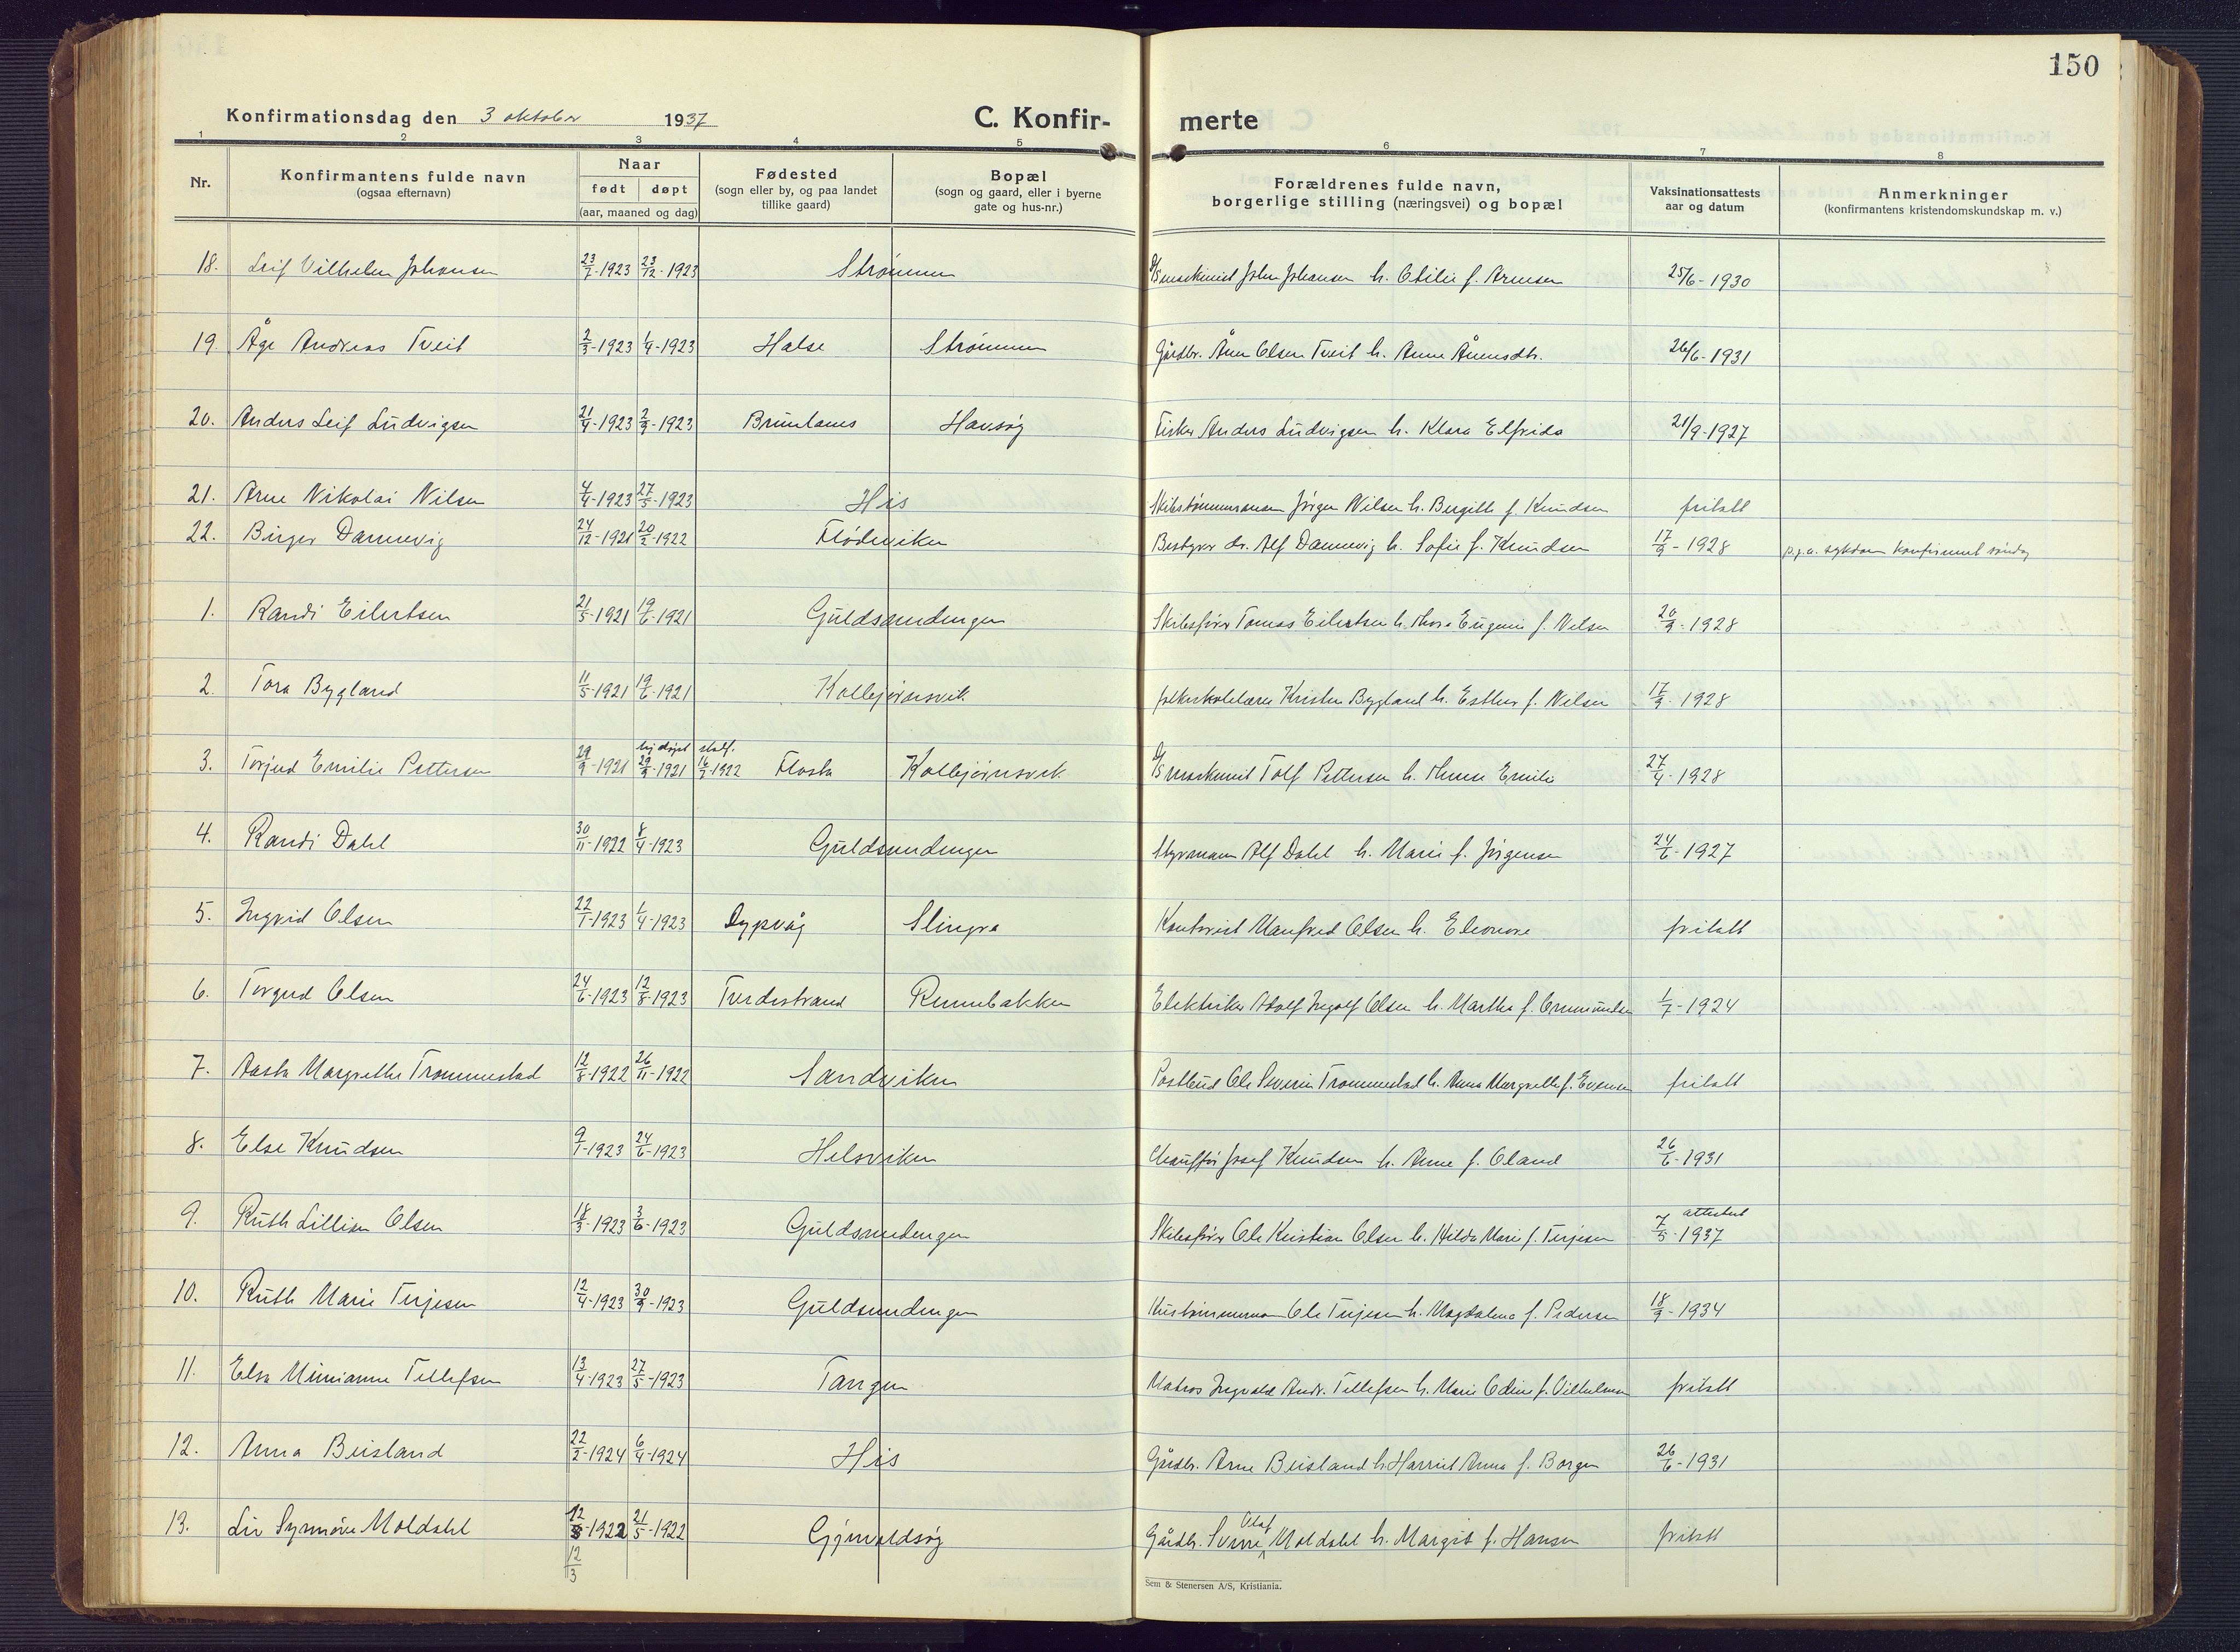 150
Konfirmationsdag den 3 oktober 1937
C. Konfir- merte
1 2 3 4 5 6 7 8
Nr.
Konfirmantens fulde navn
(ogsaa efternavn)
Naar
født døpt
(aar, maaned og dag)
Fødested
(sogn eller by, og paa landet
tillike gaard)
Bopæl
(sogn og gaard, eller i byerne
gate og hus-nr.)
Forældrenes fulde navn,
borgerlige stilling (næringsvei) og bopæl
Vaksinationsattests
aar og datum
Anmerkninger
(konfirmantens kristendomskundskap m. v.)
18. Leif Vilhelm Johansen 23/7-1923 23/12-1923 Strømmen maskinist John Johansen h. Otilie f. Arnesen 25/6-1930
19. Åge Andreas Tveit 2/3-1923 1/4-1923 Halse Strømmen Gårdbr. Ånen Olsen Tveit h. Anne Ånensdtr. 26/6-1931
20. Anders Leif Ludvigsen 21/4-1923 2/9-1923 Brunlanes Havsøy Fisker Anders Ludvigsen h. Klara Elfrida 21/9-1927
21. Arne Nikolai Nilsen 4/4-1923 27/5-1923 His Skibstømmermann Jörgen Nilsen h. Bergith f. Knudsen fritatt
22. Birger Dannevig 24/12-1921 20/2-1922 Flödeviken Bestyrer dr. Alf Dannevig h. Sofie f. Knudsen 17/9-1928 p.g.a. sykdom konfirmert söndag
1. Randi Eilertsen 21/5-1921 19/6-1921 Guldsmedengen Skibsfører Tomas Eilertsen h. Thora Eugenie f. Nilsen 20/9-1928
2. Tora Bygland 11/5-1921 19/6-1921 Kolbjørnsvik folkeskolelærer Kristen Bygland h. Esther f. Nilsen 17/9-1928
3. Torjud Emilie Pettersen 29/9-1921 hj.døpt 29/9-1921 stadf. 16/7-1922 Flosta Kolbjørnsvik maskinist Tolf Pettersen h. Emilie 27/4-1928
4. Randi Dahl 30/11-1922 8/4-1923 Guldsmedengen Styrmann Alf Dahl h. Marie f. Jörgensen 24/6-1927
5. Ingrid Olsen 22/1-1923 1/4-1923 Dypvåg Slingra Kontorist Manfred Olsen h. Eleonore fritatt
6. Torgud Olsen 24/6-1923 12/8-1923 Tvedestrand Rennebakken Elektriker Adolf Ingolf Olsen h. Martha f. Ommundsen 1/7-1924
7. Aasta Margrethe Trommestad 12/8-1922 26/11-1922 Sandviken Postbud Ole Severin Trommestad h. Anna Margrethe f. Evensen fritatt
8. Else Knudsen 9/1-1923 24/6-1923 Helsviken Chauffør Josef Knudsen h. Anne f. Oland 26/6-1931
9. Ruth Lillian Olsen 18/3-1923 3/6-1923 Guldsmedengen Skibsfører Ole Kristian Olsen h. Hilda Marie f. Terjesen attestert 7/5-1937
10. Ruth Marie Terjesen 12/4-1923 30/9-1923 Guldsmedengen Hustømmerm. Ole Terjesen h. Magdalena f. Pedersen 18/9-1934
11. Elsa Minianne Tellefsen 13/4-1923 27/5-1923 Tangen Matros Ingvald Andr. Tellefsen h. Marie Odine f. Vilhelmsen fritatt
12. Anna Beisland 22/2-1924 6/4-1924 His Gårdbr. Arne Beisland h. Harriet Anna f. Borgen 26/6-1931
13. Liv Synnøve Moldahl 12/3-1922 21/5-1922 Gjervoldsøy Gårdbr. Sverre Olaf Moldahl h. Margit f. Hansen fritatt
12/3
Sem & Stenersen A/S, Kristiania.